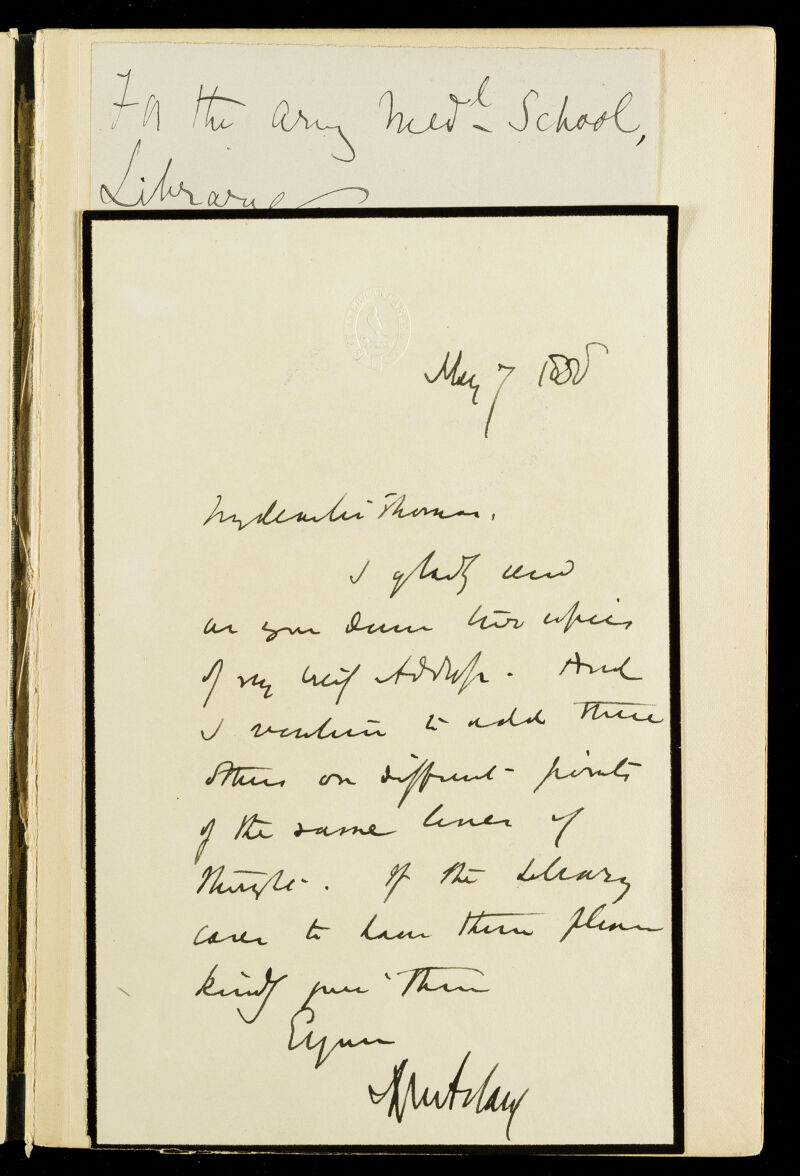 For the Army Medl School,
Library
May 7 1888
My dear Sir Thomas,
I gladly send
as you desire two copies
of my brief Address. And
I venture to add three
others on different points
of the same lines of
thought. If the Library
cares to have them please
kindly give them
Ev yours